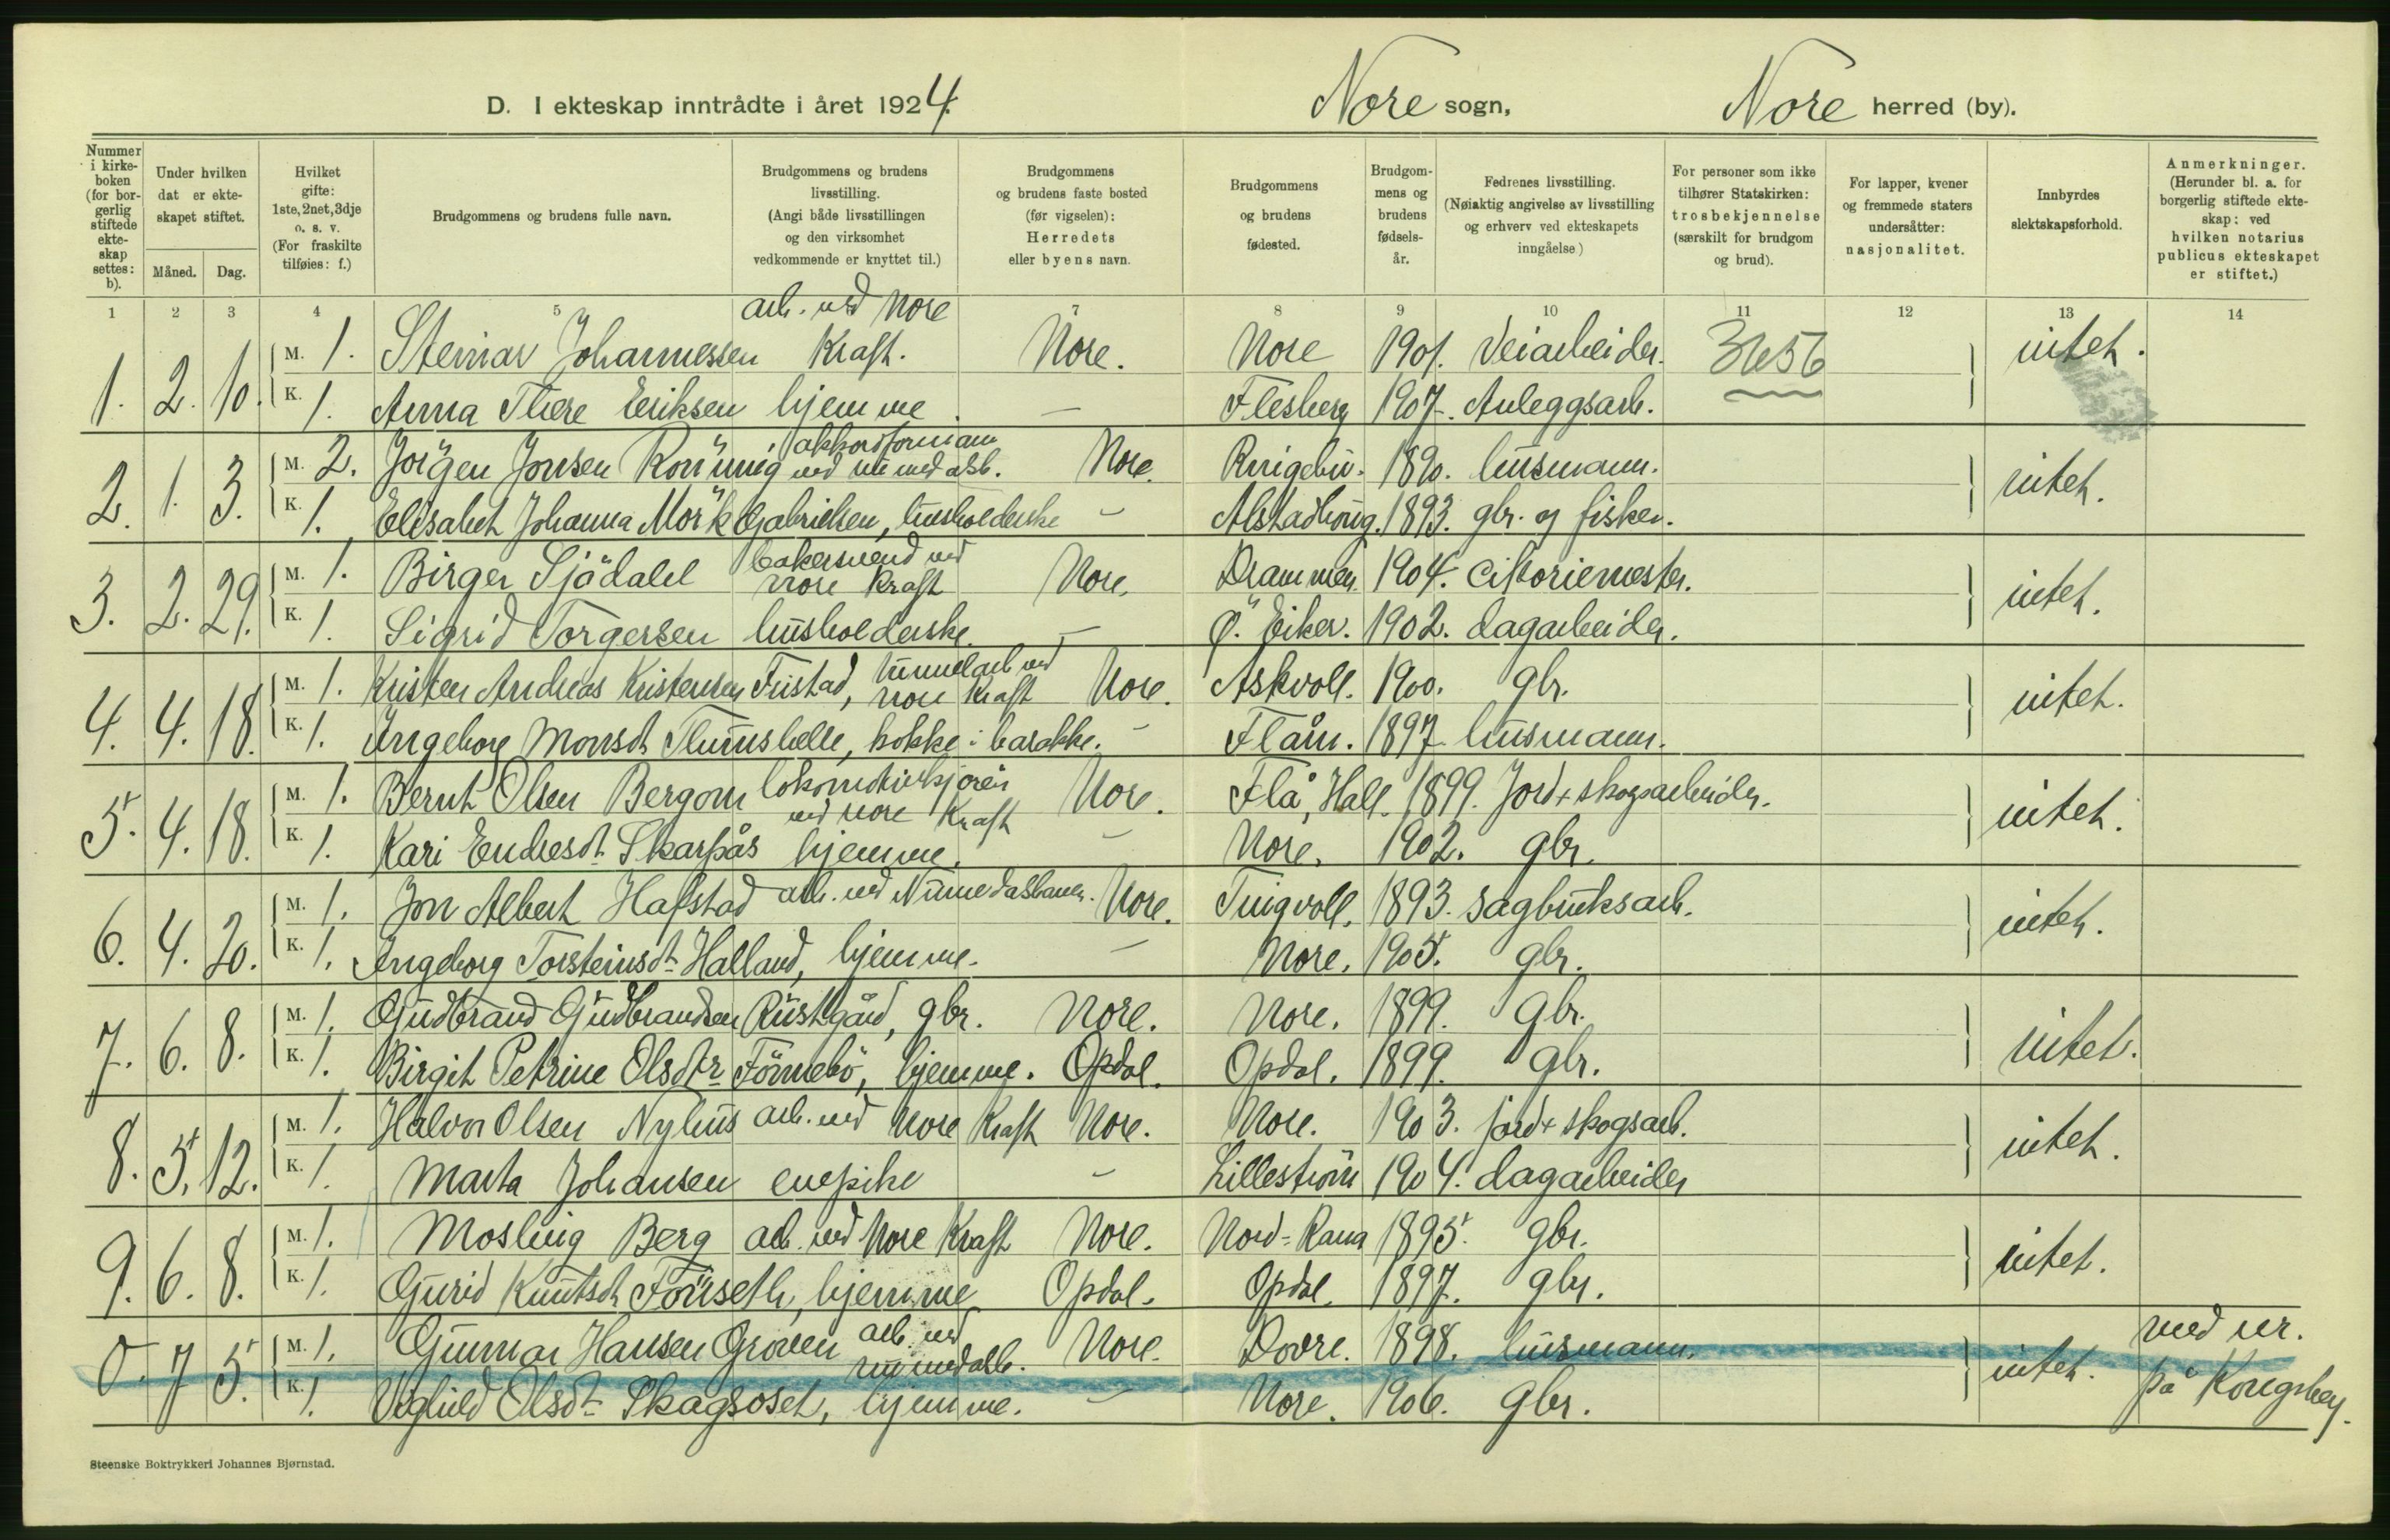 D. I ekteskap inntrådte i året 1924. Nore sogn, Nore herred (by).
Nummer i kirke-boken (for bor-gerlig stiftede ekte-skap settes: b).
Under hvilken dat er ekte-skapet stiftet.
Måned. Dag.
Hvilket gifte: 1ste, 2net, 3dje o. s. v. (For fraskilte tilføies: f.)
Brudgommens og brudens fulle navn.
Brudgommens og brudens livsstilling. (Angi både livsstillingen og den virksomhet vedkommende er knyttet til.)
Brudgommens og brudens faste bosted (før vigselen): Herredets eller byens navn.
Brudgommens og brudens fødested.
Brudgom-mens og brudens fødsels-år.
Fedrenes livsstilling. (Nøiaktig angivelse av livsstilling og erhverv ved ekteskapets inngåelse)
For personer som ikke tilhører Statskirken: trosbekjennelse (særskilt for brudgom og brud).
For lapper, kvener og fremmede staters undersåtter: nasjonalitet.
Innbyrdes slektskapsforhold.
Anmerkninger. (Herunder bl. a. for borgerlig stiftede ekte-skap: ved hvilken notarius publicus ekteskapet er stiftet.)
1 2 3 4 5 7 8 9 10 11 12 13 14
1. 2. 10. M. 1. Steinar Johannessen arb. ved Nore Kraft. Nore. Nore 1901. Veiarbeider. 3656 intet.
K. 1. Anna There Eriksen hjemme. — Flesberg 1907. Anleggsarb.
2. 1. 3. M. 2. Jörgen Jonsen Rönning, akkordformann ved numedalsb. Nore. Ringebu. 1890. husmann. intet.
K. 1. Elisabet Johanna Mörk Gabrielsen, husholderske — Alstadhoug. 1893. gbr. og fisker.
3. 2. 29. M. 1. Birger Sjödahl bakersvend ved Nore Kraft Nore. Drammen. 1904. cikoriemester. intet.
K. 1. Sigrid Torgersen husholderske. — Ø. Eiker. 1902. dagarbeider.
4. 4. 18. M. 1. Kristen Andreas Kristensen Fustad, tunnelarb ved Nore Kraft Nore. Askvoll. 1900. gbr. intet.
K. 1. Ingeborg Monsdt. Flumshelle, kokke i barakke. — Flåm. 1897. husmann.
5. 4. 18. M. 1. Bernt Olsen Bergom lokomotivkjører ved Nore Kraft Nore. Flå, Hall. 1899. Jord + skogsarbeider. intet.
K. 1. Kari Endresdt. Skarpås hjemme. — Nore. 1902. gbr.
6. 4. 20. M. 1. Jon Albert Hafstad arb. ved Numedalsbanen. Nore. Tingvoll. 1893. sagbruksarb. intet.
K. 1. Ingeborg Torsteinsdt. Halland, hjemme. — Nore. 1905. gbr.
7. 6. 8. M. 1. Gudbrand Gudbrandsen Rustgård, gbr. Nore. Nore. 1899. gbr. intet.
K. 1. Birgit Petrine Olsdtr. Fönnebö, hjemme. Opdal. Opdal. 1899. gbr.
8. 5. 12. M. 1. Halvor Olsen Nyhus arb. ved Nore Kraft Nore. Nore. 1903. jord + skogsarb. intet.
K. 1. Marta Johansen enepike — Lilleström 1904. dagarbeider
9. 6. 8. M. 1. Mosling Berg arb. ved Nore Kraft Nore. Nord-Rana 1895. gbr. intet.
K. 1. Gurid Knutsdt. Fönseth, hjemme Opdal. Opdal. 1897. gbr.
0. 7 5. M. 1. Gunnar Hansen Groven arb. ved numedalb. Nore. Dovre. 1898. husmann. intet. på Kongsberg.
K. 1. Olsdt. Skagsoset, hjemme. — Nore. 1906. gbr.
Steenske Boktrykkeri Johannes Bjørnstad.